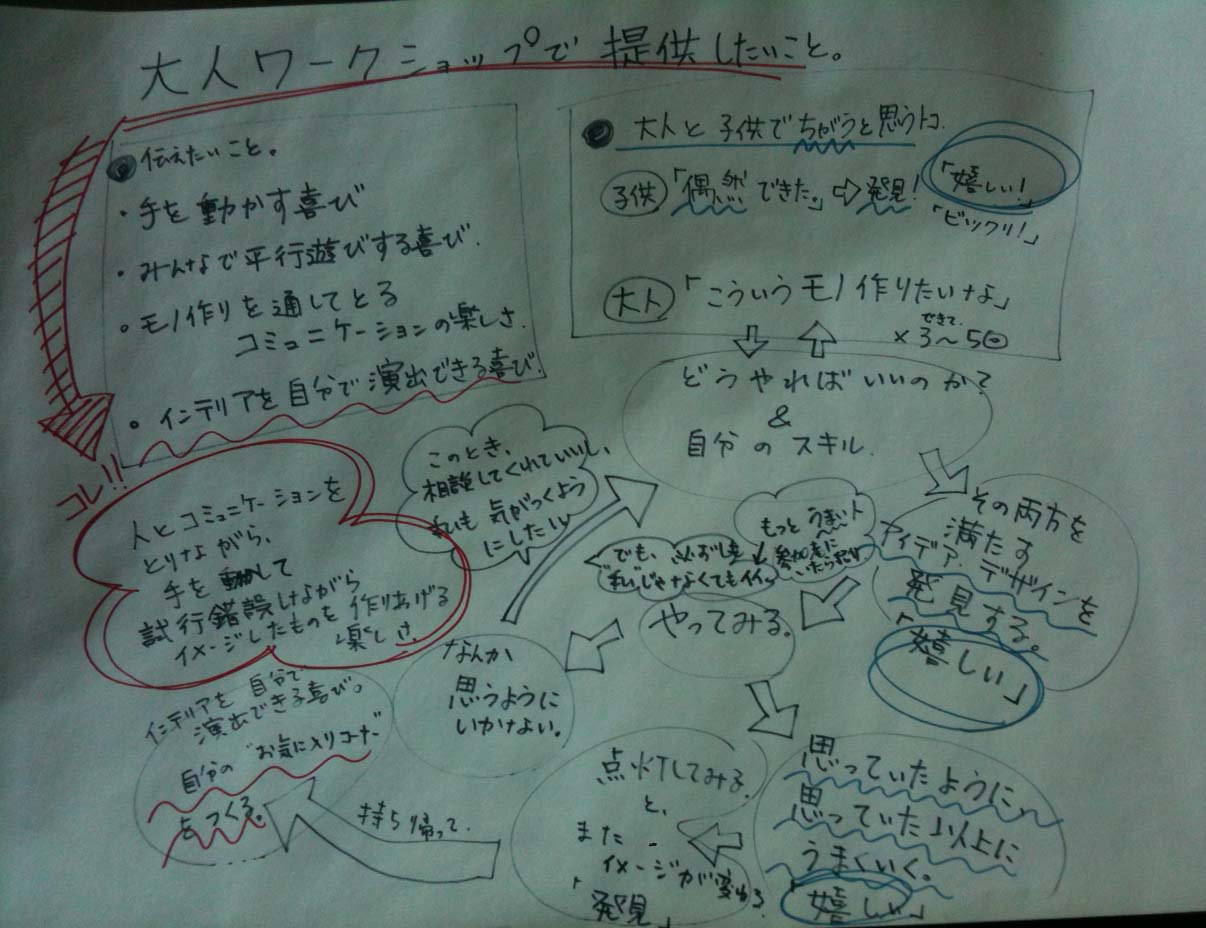 大人ワークショップで提供したいこと。
●伝えたいこと。
・手を動かす喜び
・みんなで平行遊びする喜び.
・モノ作りを通してとる
コミュニケーションの楽しさ.
・インテリアを自分で演出できる喜び.
コレ!!
人とコミュニケーションを
とりながら、
手を動かして
試行錯誤しながら
イメージしたものを作りあげる
楽しさ.
● 大人と子供でちがうと思うトコ.
子供「偶然できた。」⇨発見!
「嬉しい!」
「ビックリ!」
大人「こういうモノ作りたいなよ」
できて.
×3〜5回
どうやればいいのか?
&
自分のスキル.
その両方を
満たす
アイデア、デザインを
発見する。
「嬉しい」
もっとうまい人
参加者に
でも、必ずしも
"私"じゃなくてもイイ。
やってみる。
このとき、
相談してくれていいし、
私も気がつくよう
にしたい
なんか
思うように
いかない。
思っていたように、
思っていた以上に
うまくいく。
「嬉しい」
点灯してみる
と、
また
イメージが変わる.
「発見」
持ち帰って.
インテリアを自分で
演出できる喜び。
自分の"お気に入りコーナー"
をつくる。